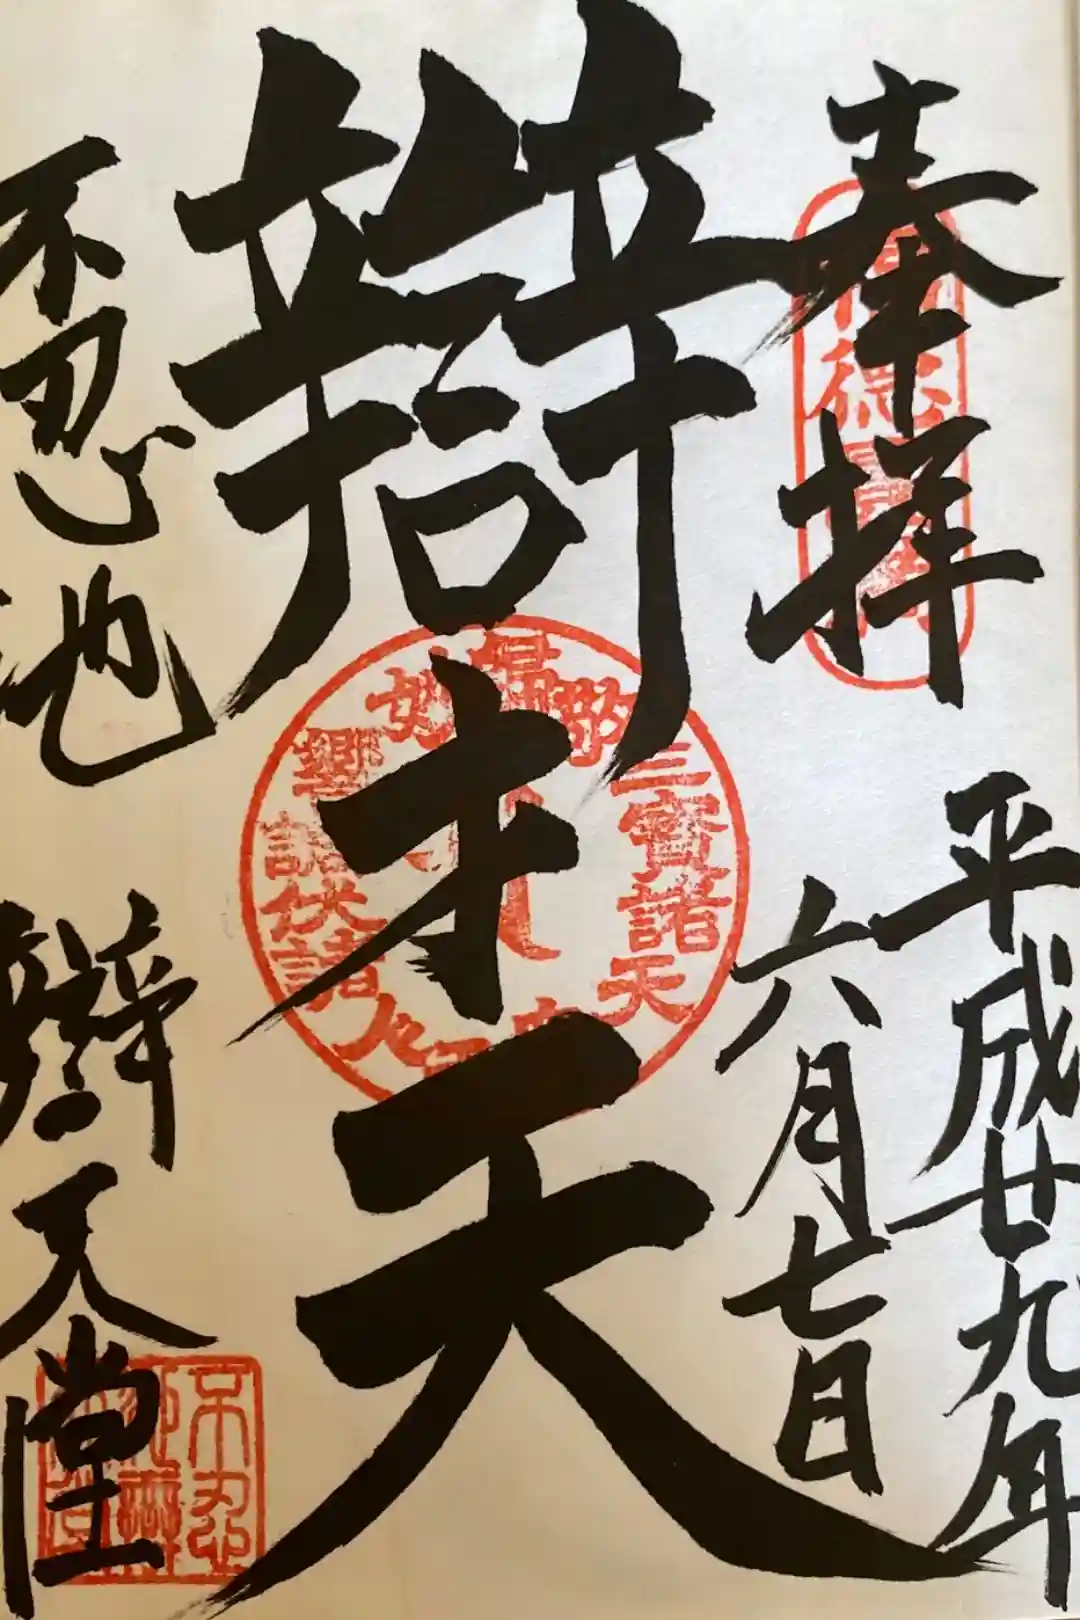 奉拝
平成廿九年
六月七日
辯才天
不忍池
辯天堂